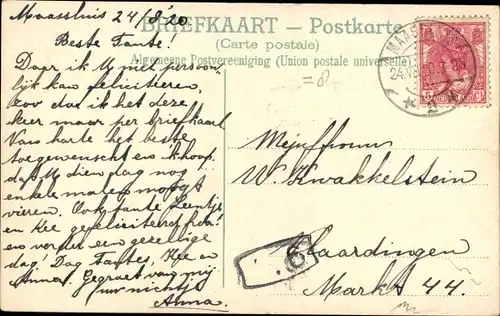 Maassluis 24/8 '20
BRIEFKAART — Postkarte
(Carte postale)
Algemeene Postvereeniging (Union postale universelle)
Beste Tante!
Daar ik U niet persoon-
lijk kan feliciteeren,
zoo dat ik het deze
keer maar per briefkaart.
Van harte het beste
toegewenscht en 'k hoop
dat U dien dag nog
enkele malen moogt
vieren. Ook tante Leentje
en Kee gefeliciteerd hoor!
en verder een gezellige
dag! Dag Tantes, Kee en
Anna. Gegroet van mij
uw nichtje
Anna.
=8
MAAS
24.VIII
5
Mejuffrouw
W. Kwakkelstein
Vlaardingen
Markt 44.